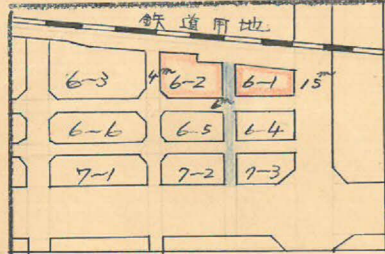 鉄道用地
6-3 4m 6-2 6-1 15m
6m
6-6 6-5 6-4
7-1 7-2 7-3